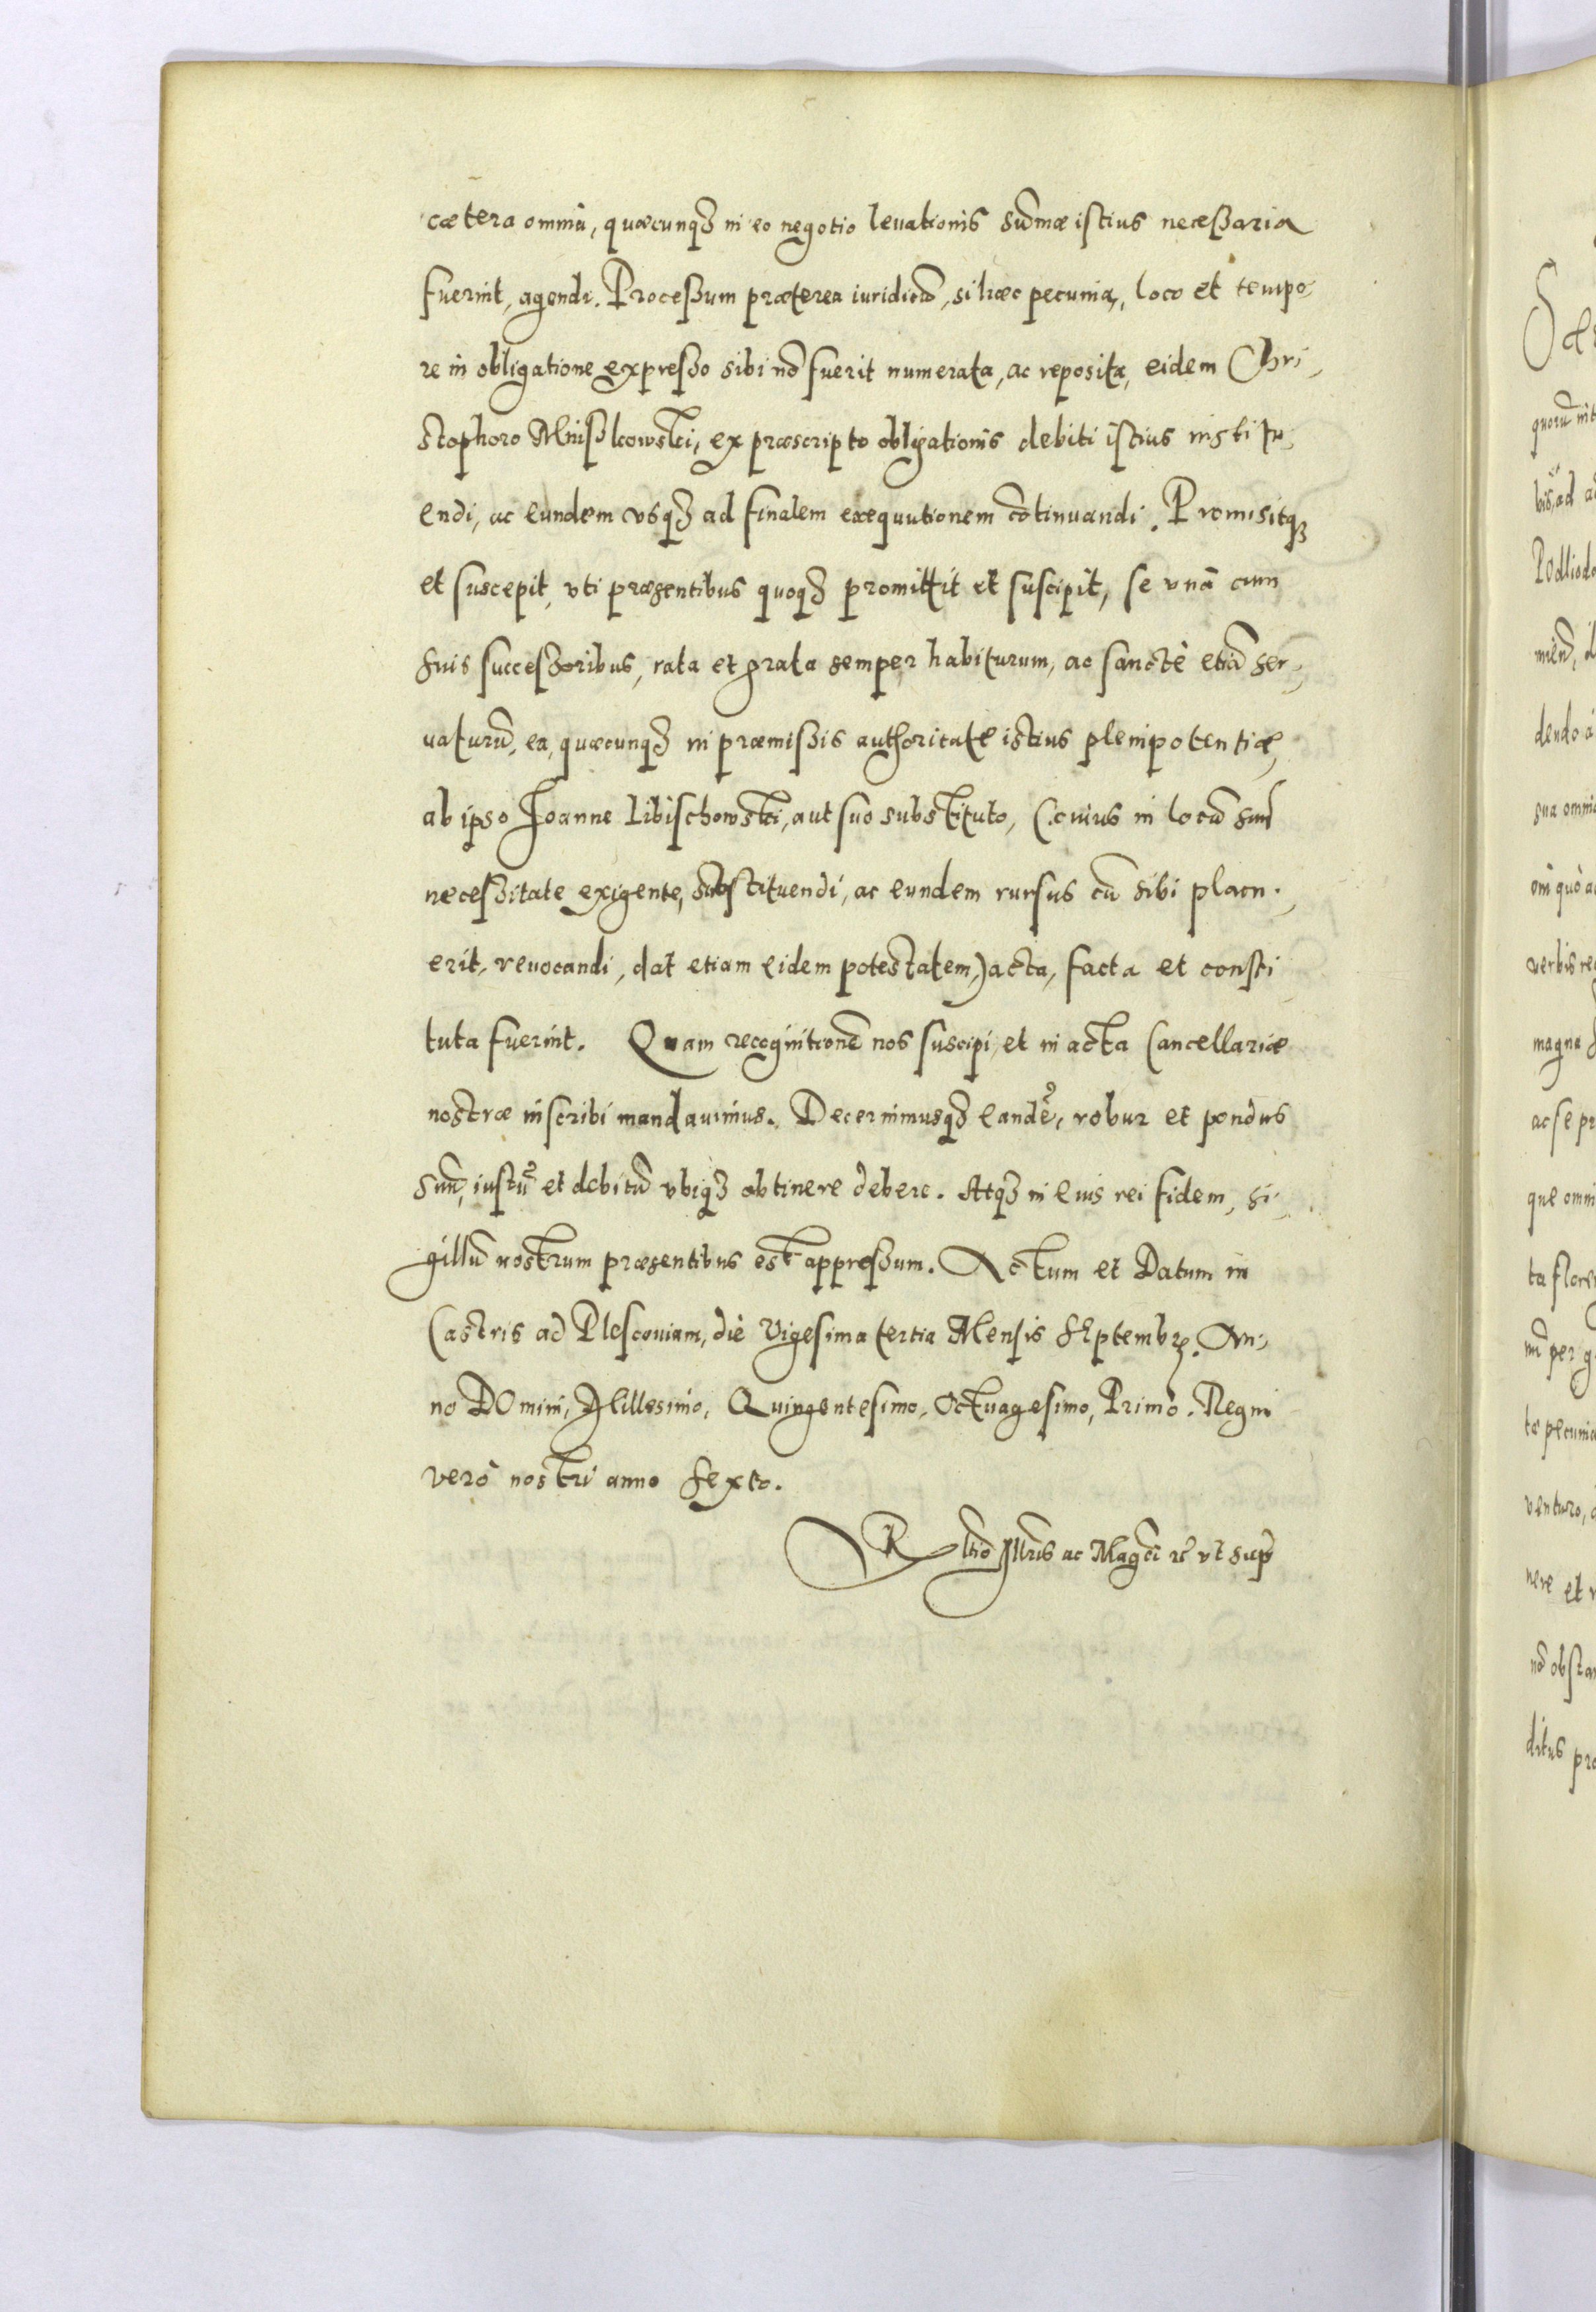 cætera omnia, quæcunq₃ in eo negotio leuationis sūmæ istius necessaria
fuerint, agendi. Processum præterea iuridicū, si hæc pecunia, loco et tempo-
re in obligatione expresso sibi nō fuerit numerata, ac reposita, eidem Chri-
stophoro Mniszkowski, ex præscripto obligationis debiti istius institu-
endi, ac eundem vsq₃ ad finalem exequutionem cōtinuandi. Promisitq₃
et suscepit, vti præsentibus quoq₃ promittit et suscipit, se vnà cum
suis successoribus, rata et grata semper habiturum, ac sanctè etiā ser-
uaturū, ea, quæcunq₃ in præmissis authoritate istius plenipotentiæ,
ab ipso Joanne Libischowski, aut suo substituto, (cuius in locū suū
necessitate exigente, substituendi, ac eundem rursus cū sibi placu-
erit, reuocandi, dat etiam eidem potestatem,) acta, facta et consti
tuta fuerint. Quam recognitionē nos suscipi, et in acta Cancellariæ
nostræ inscribi mandauimus. Decernimusq₃ eandē, robur et pondus
suū, iustū et debitū vbiq₃ obtinere debere. Atq₃ in eius rei fidem, si-
gillū nostrum præsentibus est appressum. Actum et Datum in
Castris ad Plescouiam, die Vigesima tertia Mensis Septembr. An-
no DOmini, Millesimo, Quingentesimo, Octuagesimo, Primo. Regni
verò nostri anno Sexto.
Rltio Illris ac Magci rc̄ vt sup